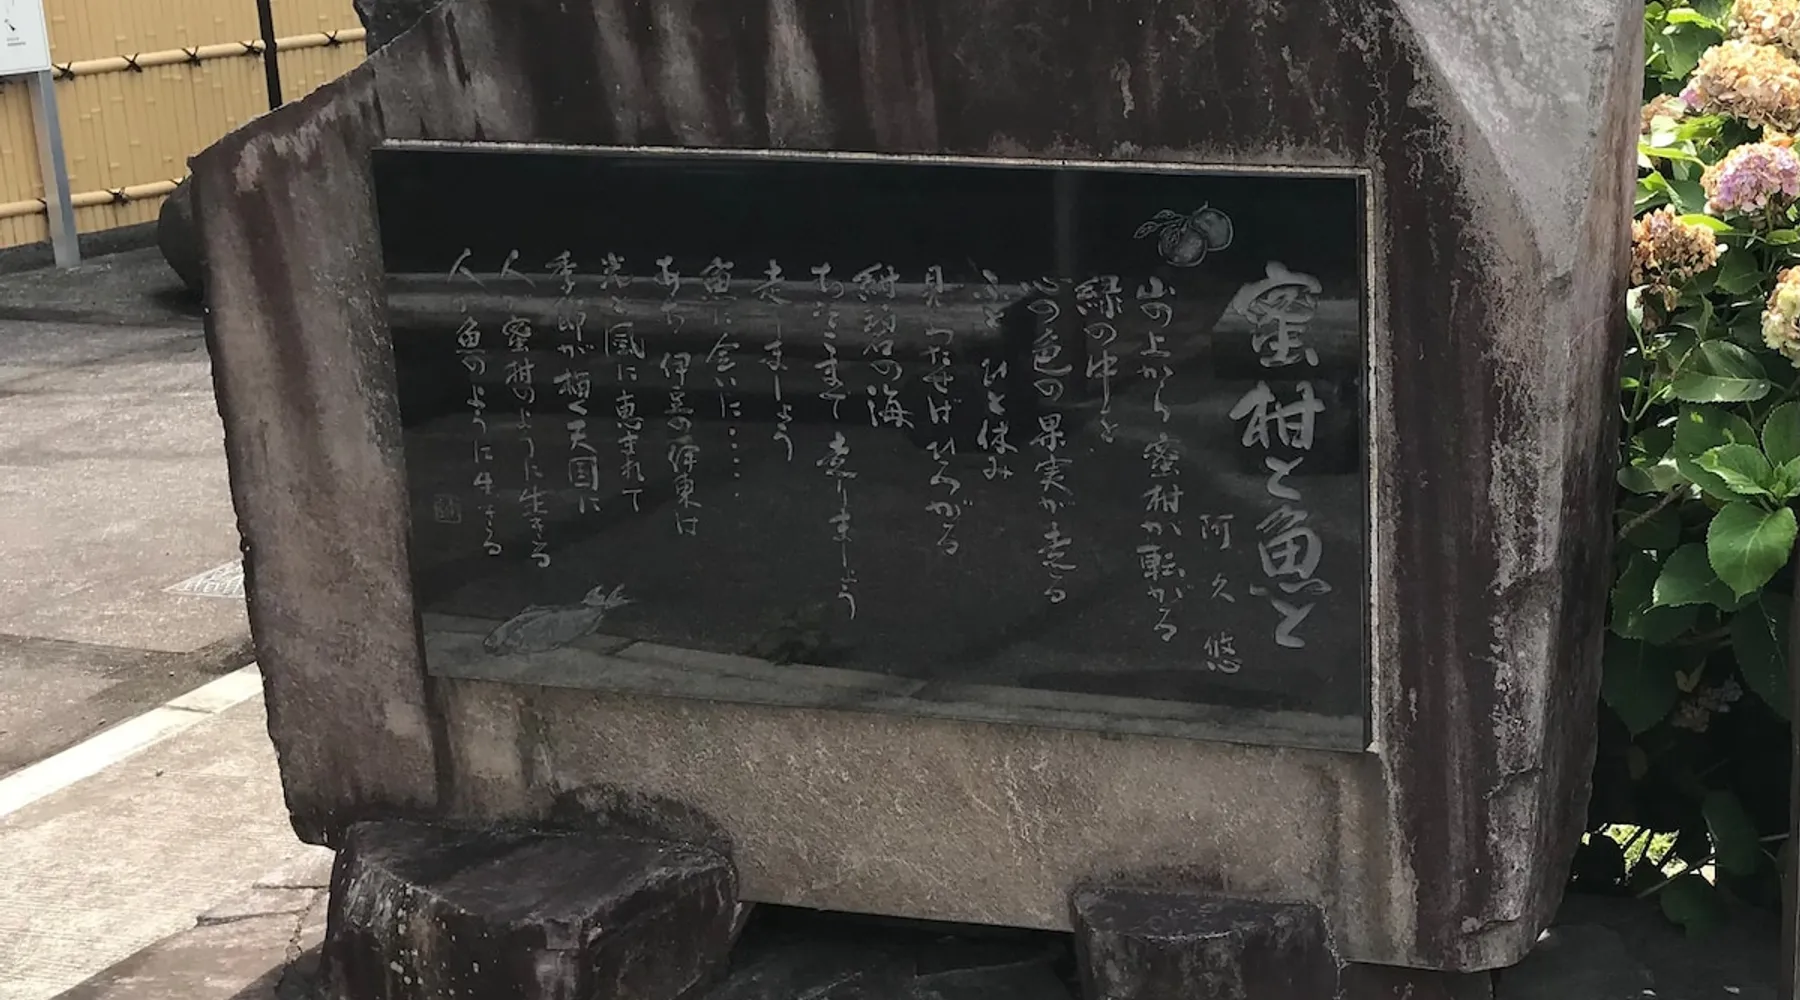 蜜柑と魚と
阿久悠
山の上から蜜柑が転がる
緑の中を
心の色の果実が走る
ふと ひと休み
見わたせば ひろがる
紺碧の海
あそこまで走りましょう
走りましょう
魚に会いに・・・・・
あゝ 伊豆の伊東は
光と風に恵まれて
季節が頷く天国に
人は蜜柑のように生きる
人は魚のように生きる